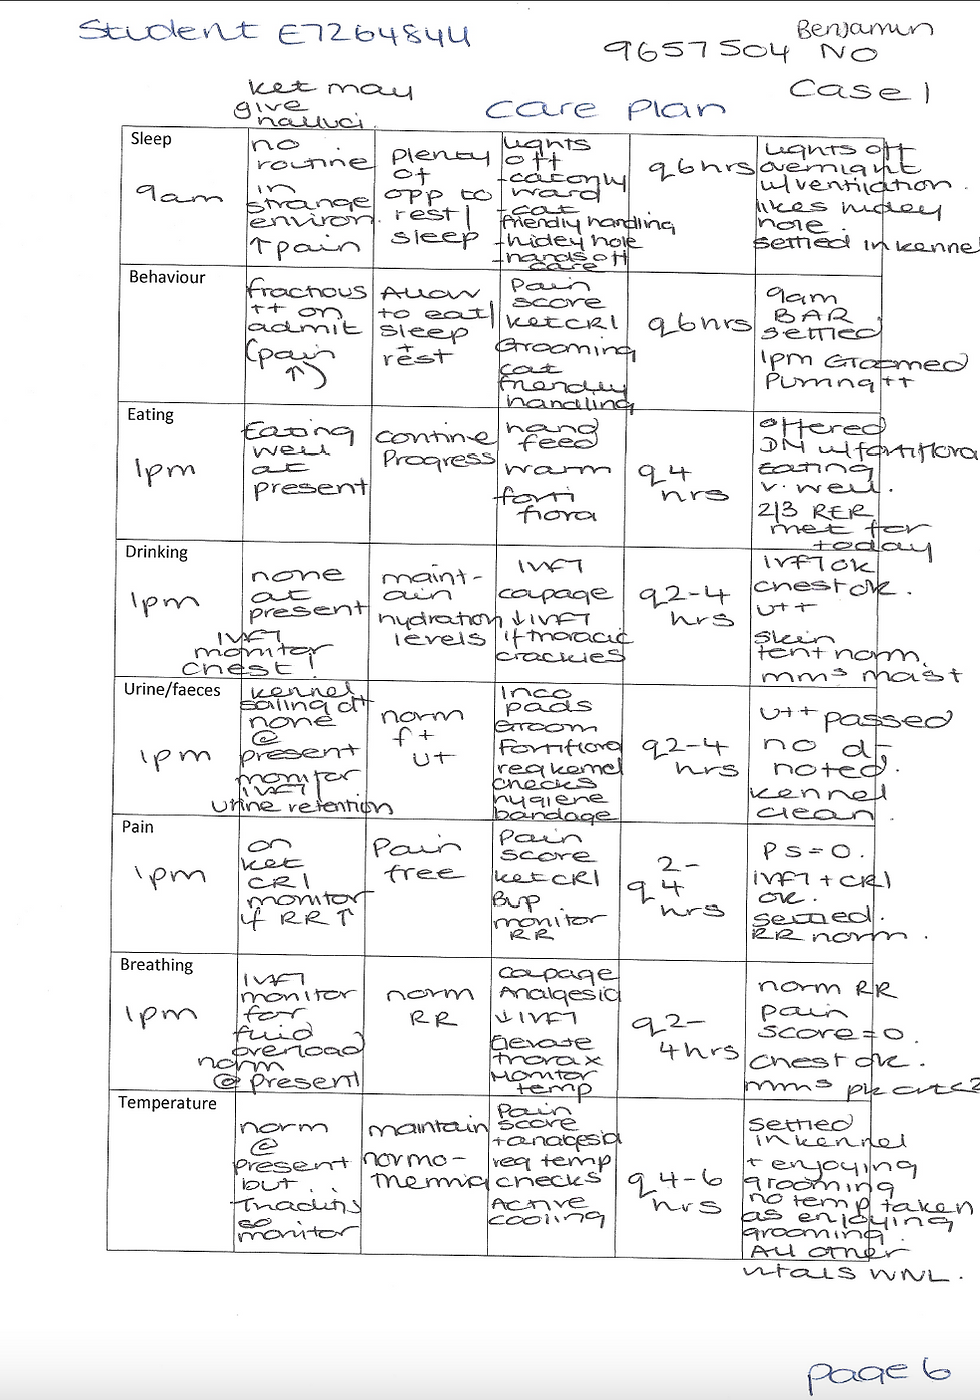 Student E7264844
Benjamin
9657504 NO
Case 1
ket may
give
halluci.
Care Plan
Sleep
9am
no
routine
in
strange
environ.
↑ pain
Plenty
of
opp to
rest/
sleep
Lights
off
- cat only
ward
- cat
friendly handling
- hidey hole
- hands off
care
q6hrs
Lights off
overnight
w/ ventilation.
likes hidey
hole.
settled in kennel
Behaviour
fractious
++ on
admit
(pain
↑)
Allow
to eat/
sleep
+
rest
Pain
score
ket CRI
Grooming
cat
friendly
handling
q6hrs
9am
BAR
settled
1pm Groomed
Purring ++
Eating
1pm
Eating
well
at
present
contine
Progress
hand
feed
warm
forti
flora
q4
hrs
offered
DM w/ fortiflora
Eating
v. well.
2/3 RER
met for
today
Drinking
1pm
none
at
present
IVFT
monitor
chest!
maint-
ain
hydration
levels
IVFT
capage
↓ IVFT
if thoracic
crackles
q2-4
hrs
IVFT ok
chest ok.
u++
skin
tent norm.
mms moist
Urine/faeces
1pm
kennel
soiling d+
none
@
present
monitor
IVFT/
urine retention
norm
f+
u+
Inco
pads
Groom
Fortiflora
reg kennel
checks
hygiene
bandage
q2-4
hrs
u++ passed
no d-
noted.
kennel
clean.
Pain
1pm
on
ket
CRI
monitor
if RR↑
Pain
free
Pain
score
ket CRI
Bup
monitor
RR
2-
q4
hrs
PS=0.
IVFT + CRI
ok.
settled.
RR norm.
Breathing
1pm
IVFT
monitor
for
fluid
overload
norm
@ present
norm
RR
capage
Analgesia
↓ IVFT
Elevate
thorax
Monitor
temp
q2-
4hrs
norm RR
pain
score=0.
chest ok.
mms pk crt<2
Temperature
norm
@
present
but..
so
monitor
maintain
normo-
thermia
Pain
score
+ analgesia
reg temp
checks
Active
cooling
q4-6
hrs
settled
in kennel
+ enjoying
grooming
no temp taken
as enjoying
grooming.
All other
vitals WNL.
page 6